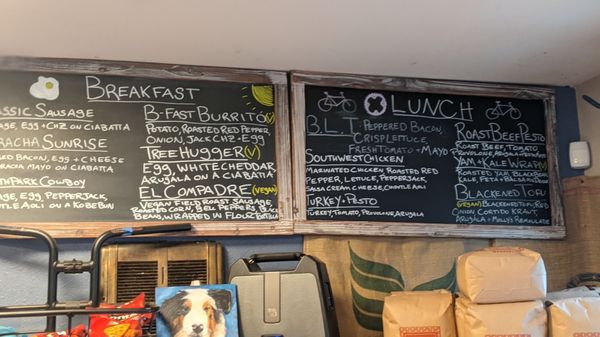 Breakfast
assic Sausage
age, Egg + Chz on Ciabatta
racha Sunrise
red Bacon, Egg + Cheese
racha Mayo on Ciabatta
th Park Cowboy
age, Egg, Pepperjack,
otle Aoli on a Kobe Bun
B-Fast Burrito (V)
Potato, Roasted Red Pepper,
Onion, Jack Chz, Egg
Tree Hugger (V)
Egg, White Cheddar
Arugala on a Ciabatta
El Compadre (Vegan)
Vegan Field Roast Sausage
Roasted Corn, Bell Peppers, Black
Beans, Wrapped in Flour Tortilla
Lunch
B.L.T. Peppered Bacon,
Crisp Lettuce,
Fresh Tomato + Mayo
Southwest Chicken
Marinated Chicken, Roasted Red
Pepper, Lettuce, Pepperjack,
Salsa Cream Cheese, Chiptle Aoli
Turkey + Pesto
Turkey, Tomato, Provolone, Arugala
Roast Beef Pesto
Roast Beef, Tomato
Provolone, Arugala
Yam + Kale Wrap
Roasted Yam, Black Bean
Kale, Feta + Balsamic
Blackened Tofu
(Vegan) Blackened Tofu, Red
Onion Cortido Kraut,
Arugala + Molly's Rosemary